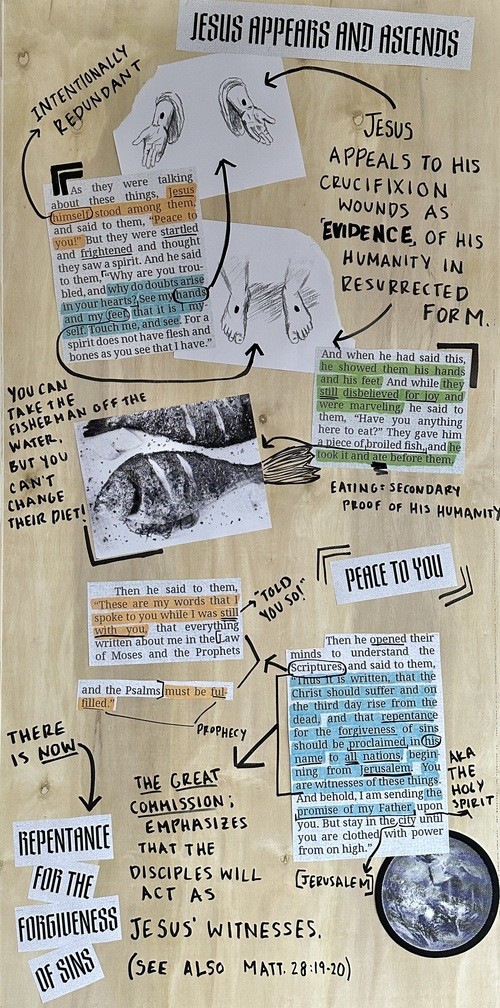 JESUS APPEARS AND ASCENDS
INTENTIONALLY
REDUNDANT
JESUS
APPEALS TO HIS
CRUCIFIXION
WOUNDS AS
"EVIDENCE" OF HIS
HUMANITY IN
RESURRECTED
FORM.
As they were talking
about these things, Jesus
himself stood among them,
and said to them, "Peace to
you!" But they were startled
and frightened and thought
they saw a spirit. And he said
to them, "Why are you trou-
bled, and why do doubts arise
in your hearts? See my hands
and my feet, that it is I my-
self. Touch me, and see. For a
spirit does not have flesh and
bones as you see that I have."
And when he had said this,
he showed them his hands
and his feet. And while they
still disbelieved for joy and
were marveling, he said to
them, "Have you anything
here to eat?" They gave him
a piece of broiled fish, and he
took it and ate before them.
YOU CAN
TAKE THE
FISHERMAN OFF THE
WATER,
BUT YOU
CAN'T
CHANGE
THEIR DIET!
EATING = SECONDARY
PROOF OF HIS HUMANITY
PEACE TO YOU
Then he said to them,
"These are my words that I
spoke to you while I was still
with you, that everything
written about me in the Law
of Moses and the Prophets
and the Psalms must be ful-
filled."
"TOLD
YOU SO!"
PROPHECY
Then he opened their
minds to understand the
Scriptures, and said to them,
"Thus it is written, that the
Christ should suffer and on
the third day rise from the
dead, and that repentance
for the forgiveness of sins
should be proclaimed in his
name to all nations, begin-
ning from Jerusalem. You
are witnesses of these things.
And behold, I am sending the
promise of my Father upon
you. But stay in the city until
you are clothed with power
from on high."
AKA
THE
HOLY
SPIRIT
[JERUSALEM]
THERE
IS NOW
REPENTANCE
FOR THE
FORGIVENESS
OF SINS
THE GREAT
COMMISSION;
EMPHASIZES
THAT THE
DISCIPLES WILL
ACT AS
JESUS' WITNESSES.
(SEE ALSO MATT. 28:19-20)